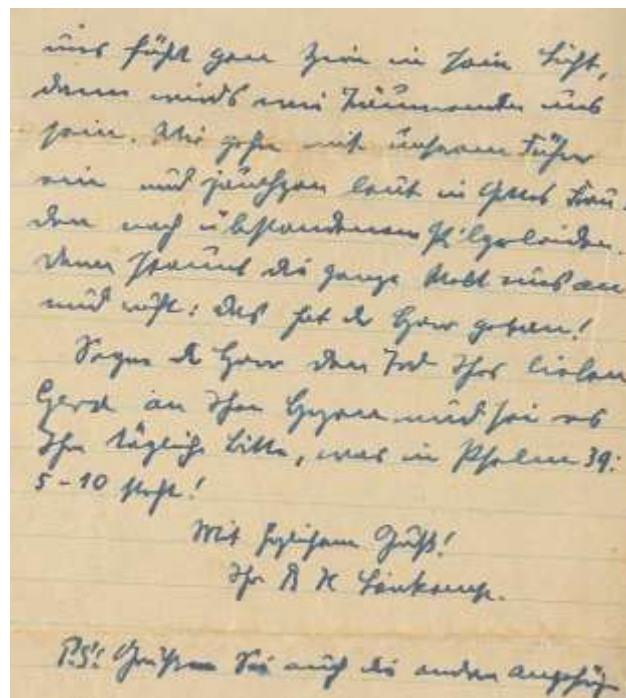 uns führt gen Zion in sein Licht,
dann wirds wie Träumenden uns
sein. Wir gehn mit unserem Führer
ein und jauchzen laut in Gottes Freu-
den nach überstandenem Pilgerleiden.
Dann staunt die ganze Welt uns an
und ruft: das hat der Herr getan!
Segne der Herr den Tod Ihres lieben
Gerd an Ihren Herzen und sei es
Ihre tägliche Bitte, was in Psalm 39:
5-10 steht!
Mit herzlichem Gruß!
Ihr
P.S.: Grüßen Sie auch die anderen Angehöri-